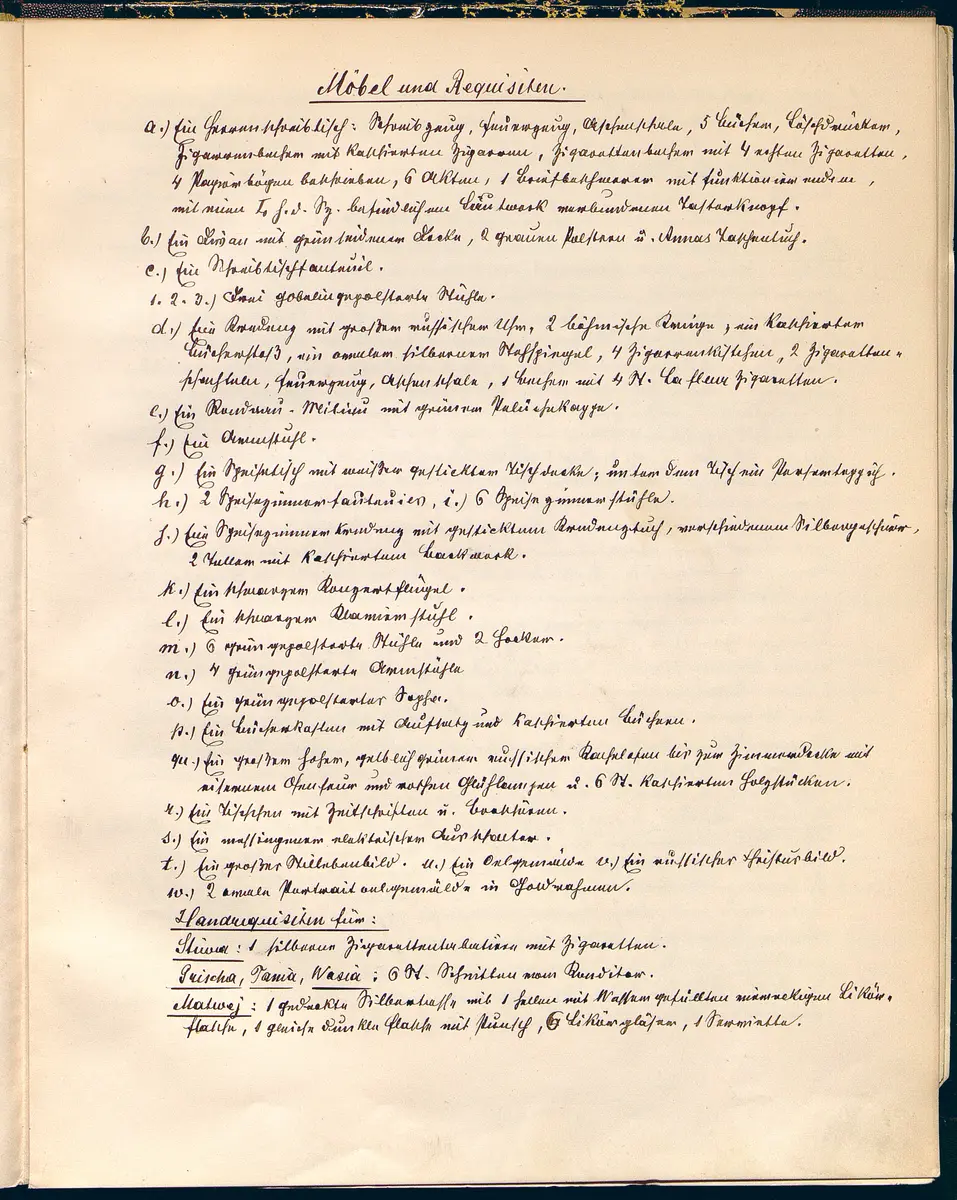 Möbel und Requisiten.
a.) Ein Herrenschreibtisch: Schreibzeug, Feuerzeug, Aschenschale, 5 Bücher, Löschdrücker,
Zigarrenbecher mit kaschierten Zigarren, Zigarettenbecher mit 4 echten Zigaretten,
4 Papierbögen beschrieben, 6 Akten, 1 Briefbeschwerer mit funktionierendem,
mit einem I. h. d. Sz. befindlichem Läutwerk verbundenen Tasterknopf.
b.) Ein Divan mit grünseidener Decke, 2 grauen Polstern u. Annas Taschentuch.
c.) Ein Schreibtischfauteuil.
1. 2. 3.) Drei gobelingepolsterte Stühle.
d.) Eine Kredenz mit großer russischer Uhr, 2 böhmische Krüge, ein kaschierter
Bücherstoß, ein ovaler silberner Stehspiegel, 4 Zigarrenkistchen, 2 Zigaretten-
schachteln, Feuerzeug, Aschenschale, 1 Becher mit 4 St. La fleur Zigaretten.
e.) Ein Rondeau-Milieu mit grüner Pelüschkappe.
f.) Ein Armstuhl.
g.) Ein Speisetisch mit weißer gestickter Tischdecke; unter dem Tisch ein Perserteppich.
h.) 2 Speisezimmerfauteuies, i.) 6 Speisezimmerstühle.
j.) Eine Speisezimmerkredenz mit gesticktem Kredenztuch, verschiedenem Silbergeschirr,
2 Teller mit kaschiertem Backwerk.
k.) Ein schwarzer Konzertflügel.
l.) Ein schwarzer Klavierstuhl.
m.) 6 grüngepolsterte Stühle und 2 Hocker.
n.) 4 grüngepolsterte Armstühle
o.) Ein grüngepolstertes Sopha.
p.) Ein Bücherkasten mit Aufsatz und kaschierten Büchern.
qu.) Ein großer hoher, gelblichgrüner russischer Kachelofen bis zur Zimmerdecke mit
eisernem Ofentür und roten Glühlampen u. 6 St. kaschierten Holzstücken.
r.) Ein Tischchen mit Zeitschriften u. Broschüren.
s.) Ein messingener elektrischer Ausschalter.
t.) Ein großes Stillebenbild. u.) Ein Oelgemälde v.) Ein russisches Christusbild.
w.) 2 ovale Portraitoelgemälde in Goldrahmen.
Handrequisiten für:
Stiwa: 1 silberne Zigarettentabatiere mit Zigaretten.
Grischa, Tania, Wasia: 6 St. Schnitten vom Konditor.
Matwej: 1 gedeckte Silbertasse mit 1 hellen mit Wasser gefüllten viereckigen Likör-
flasche, 1 gleiche dunkle Flasche mit Punsch, 6 Likörgläser, 1 Serviette.